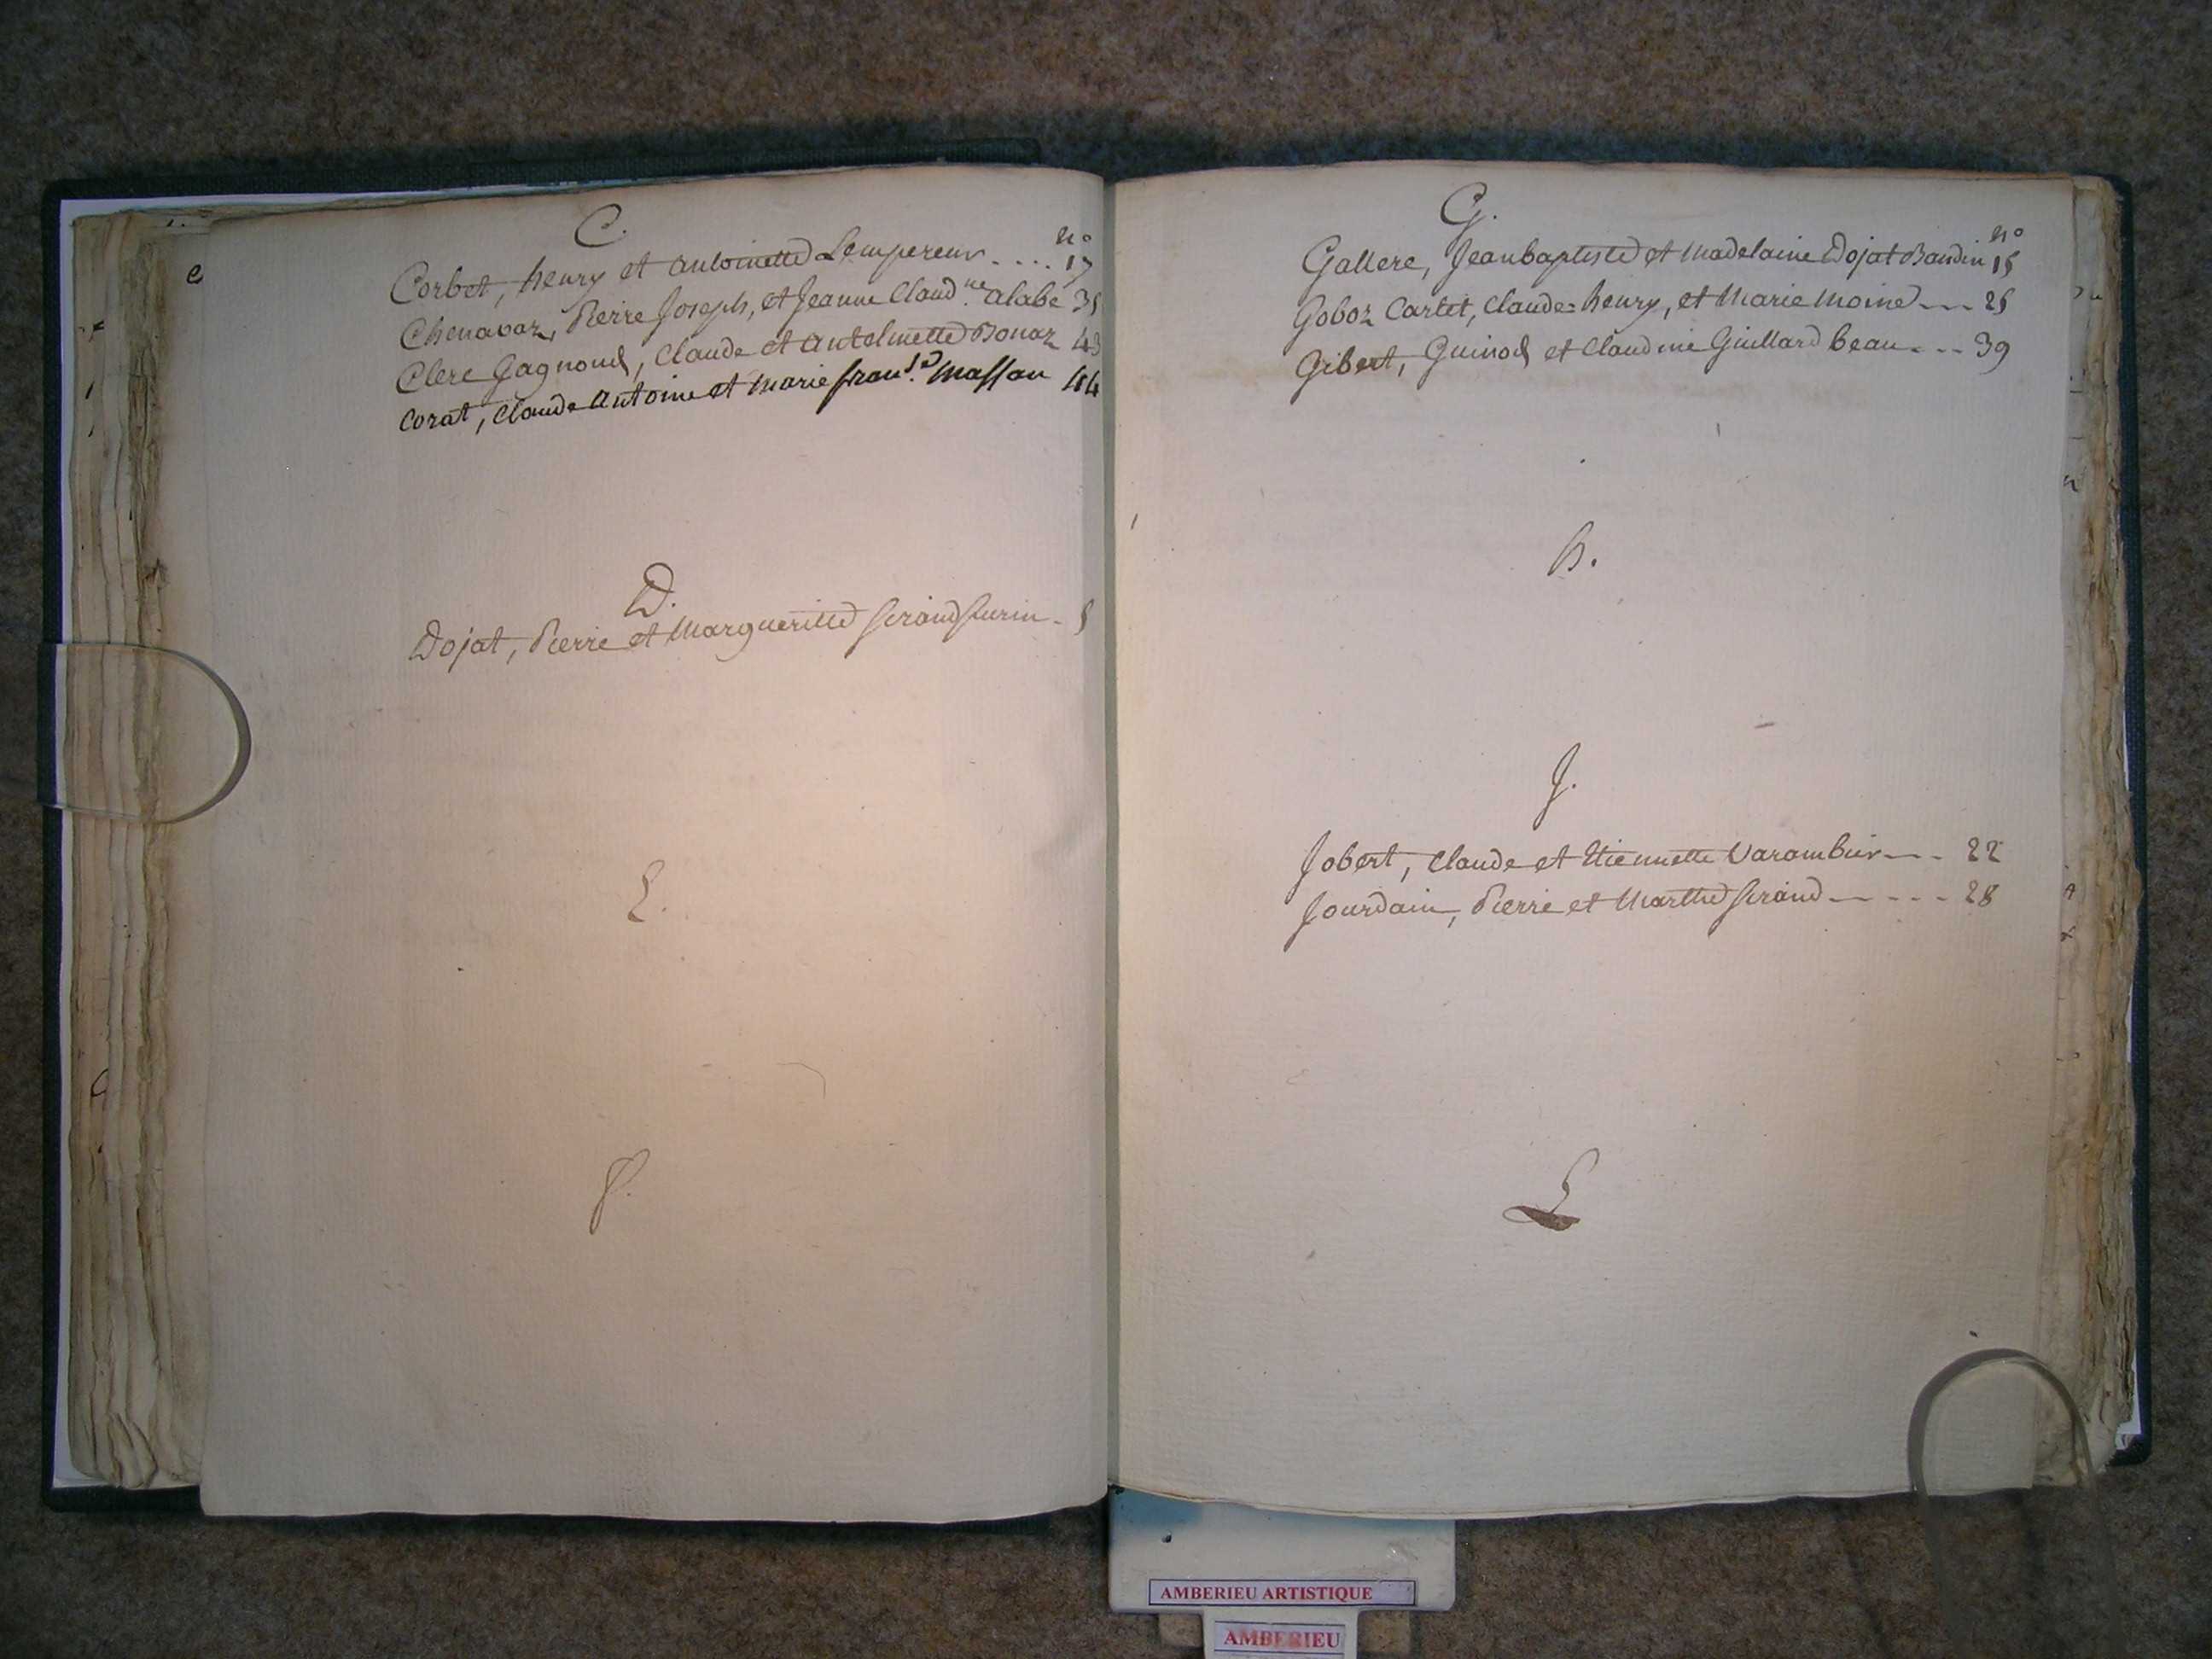 C.
nº
Corbet, henry et antoinette Lempereur .... 17
Chenavaz, Pierre Joseph, et Jeanne Claud.ne alabe 35
Clerc Gagnoud, Claude et antelmette Bonaz 43
Corat, Claude Antoine et marie fran.se massan 44
D.
Dojat, Pierre et Margueritte Serand - 5
E.
F.
G.
nº
Gallere, Jean baptiste et madelaine Dojat Baudin 15
Goboz Cartet, Claude=henry, et Marie moine --- 25
Gibert, Guinod et Claudine Guillard beau --- 39
h.
J.
Jobert, Claude et Etiennette Varambier --- 22
Jourdain, Pierre et Marthe Serand ----- 28
L
AMBERIEU ARTISTIQUE
AMBERIEU